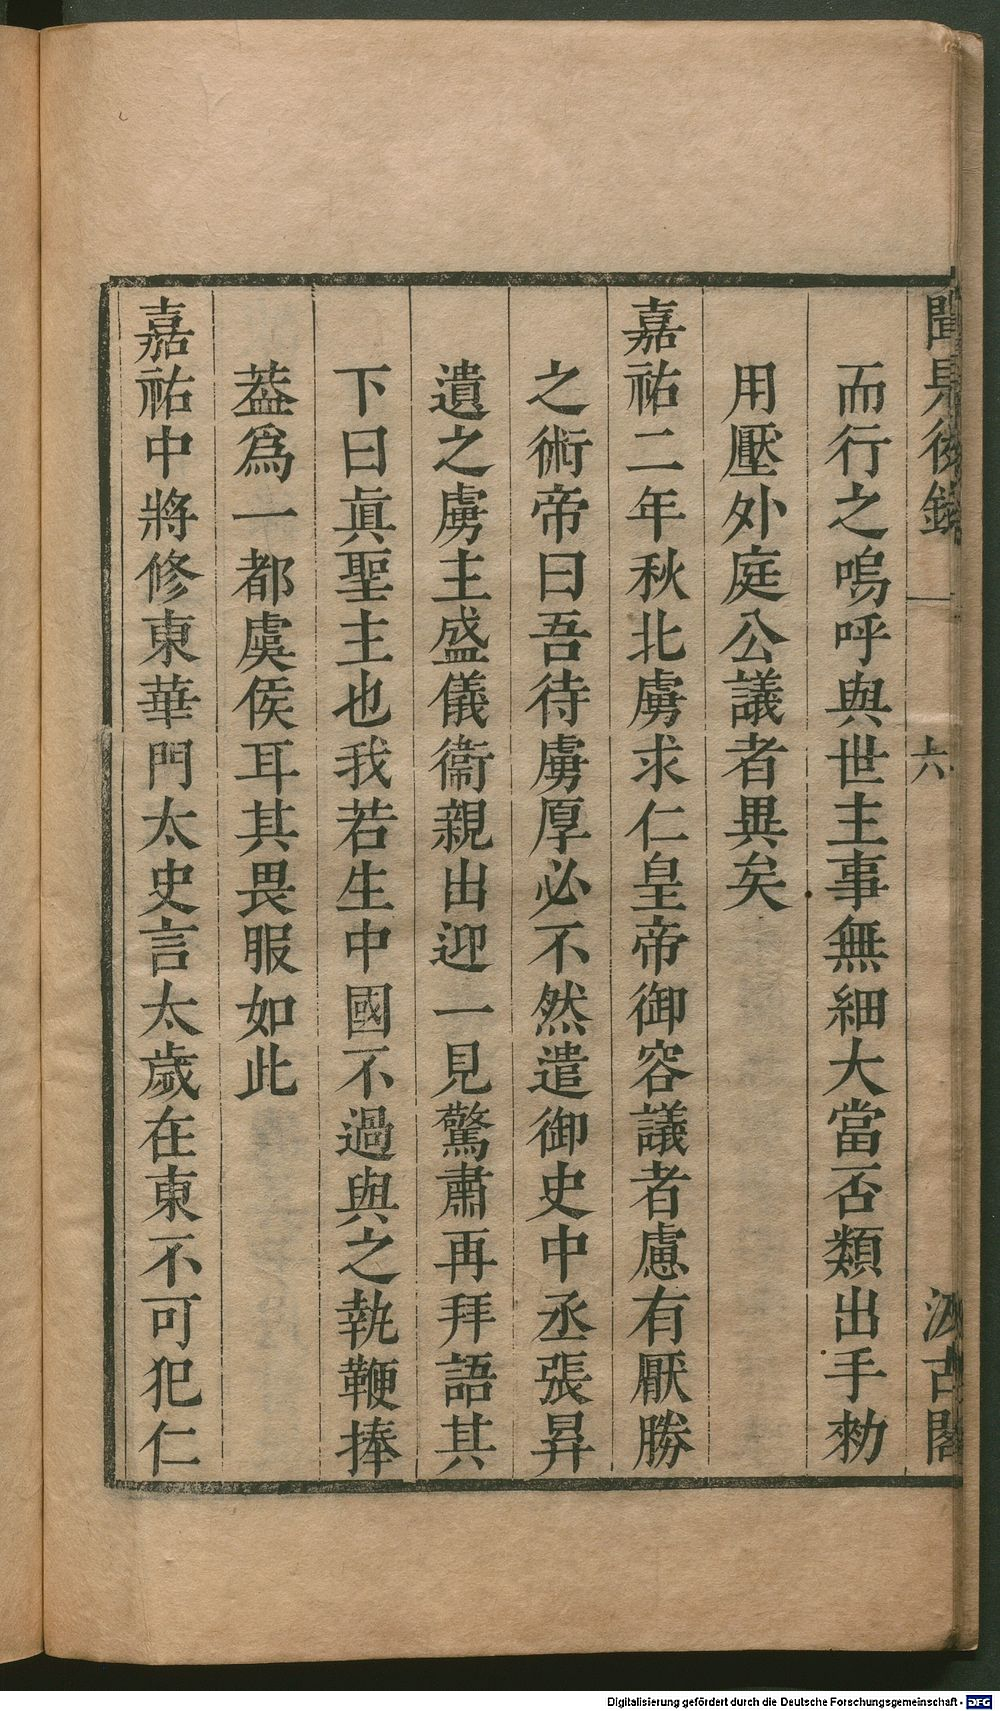 聞見後錄 一 六 汲古閣
而行之嗚呼與世主事無細大當否類出手勑
用壓外庭公議者異矣
嘉祐二年秋北虜求仁皇帝御容議者慮有厭勝
之術帝曰吾待虜厚必不然遣御史中丞張昇
遺之虜主盛儀衞親出迎一見驚肅再拜語其
下曰眞聖主也我若生中國不過與之執鞭捧
葢爲一都虞侯耳其畏服如此
嘉祐中將修東華門太史言太歲在東不可犯仁
Digitalisierung gefördert durch die Deutsche Forschungsgemeinschaft - DFG